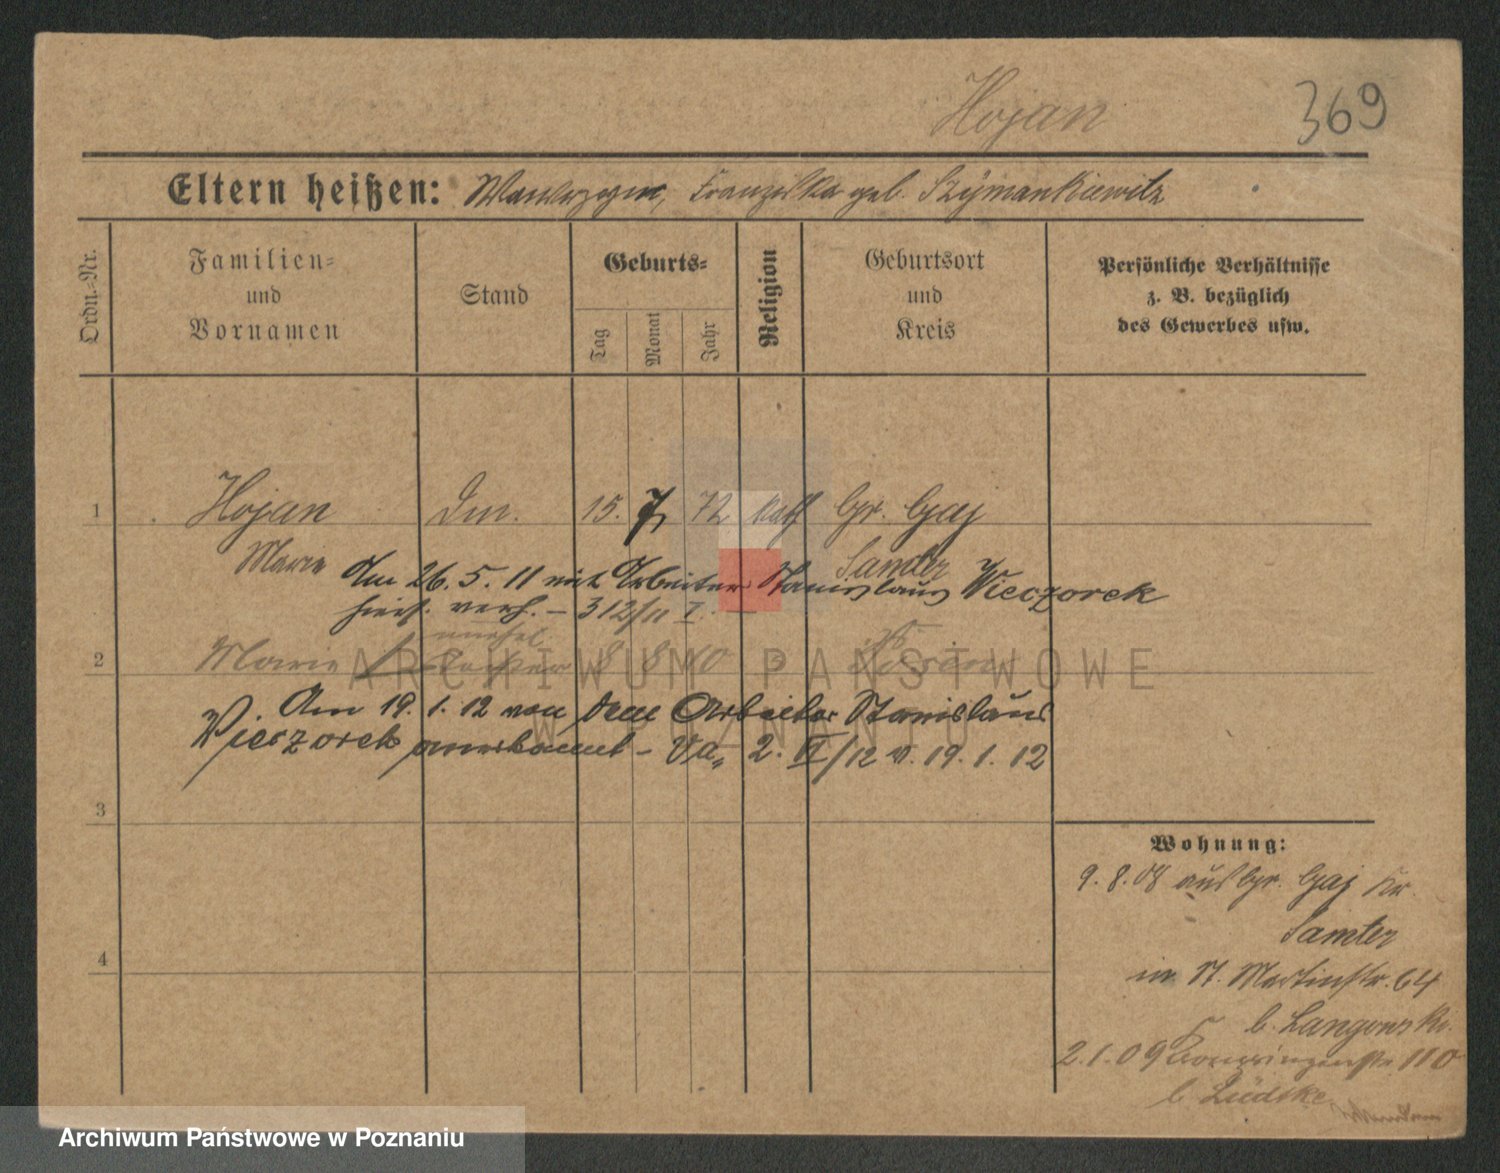 Hojan
369
Eltern heißen: Wawrzyn, Franziska geb. Szymankiewitz
Ordn.-Nr.
Familien-
und
Vornamen
Stand
Geburts-
Tag
Monat
Jahr
Religion
Geburtsort
und
Kreis
Persönliche Verhältnisse
z. B. bezüglich
des Gewerbes usw.
1 Hojan Dm. 15. 7 72 kath Gr. Gaj
Marie Samter
Am 26. 5. 11 mit Arbeiter Stanislaus Wieczorek
hiers. verh. – 312/11 I. –
unehel.
2 Marie Tochter 8 8 10 Posen
Am 19. 1. 12 von dem Arbeiter Stanislaus
Wieczorek anerkannt – Va. 2. VI/12 v. 19. 1. 12
3
4
Wohnung:
9. 8. 08 aus Gr. Gaj Kr.
Samter
in St. Martinstr. 64
b. Langowski.
2. 1. 09 Kronprinzenstr. 110
b. Lüdtke
ARCHIWUM PAŃSTWOWE
W POZNANIU
Archiwum Państwowe w Poznaniu